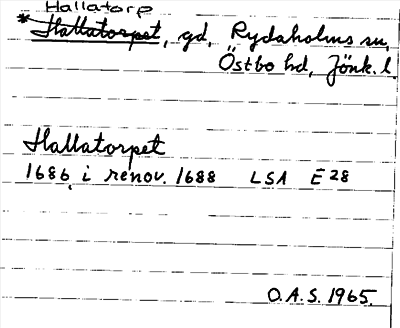 Hallatorp
* Hallatorpet, gd, Rydaholms sn,
Östbo hd, Jönk. l.
Hallatorpet
1686 i renov. 1688 LSA E 28
O.A.S. 1965.